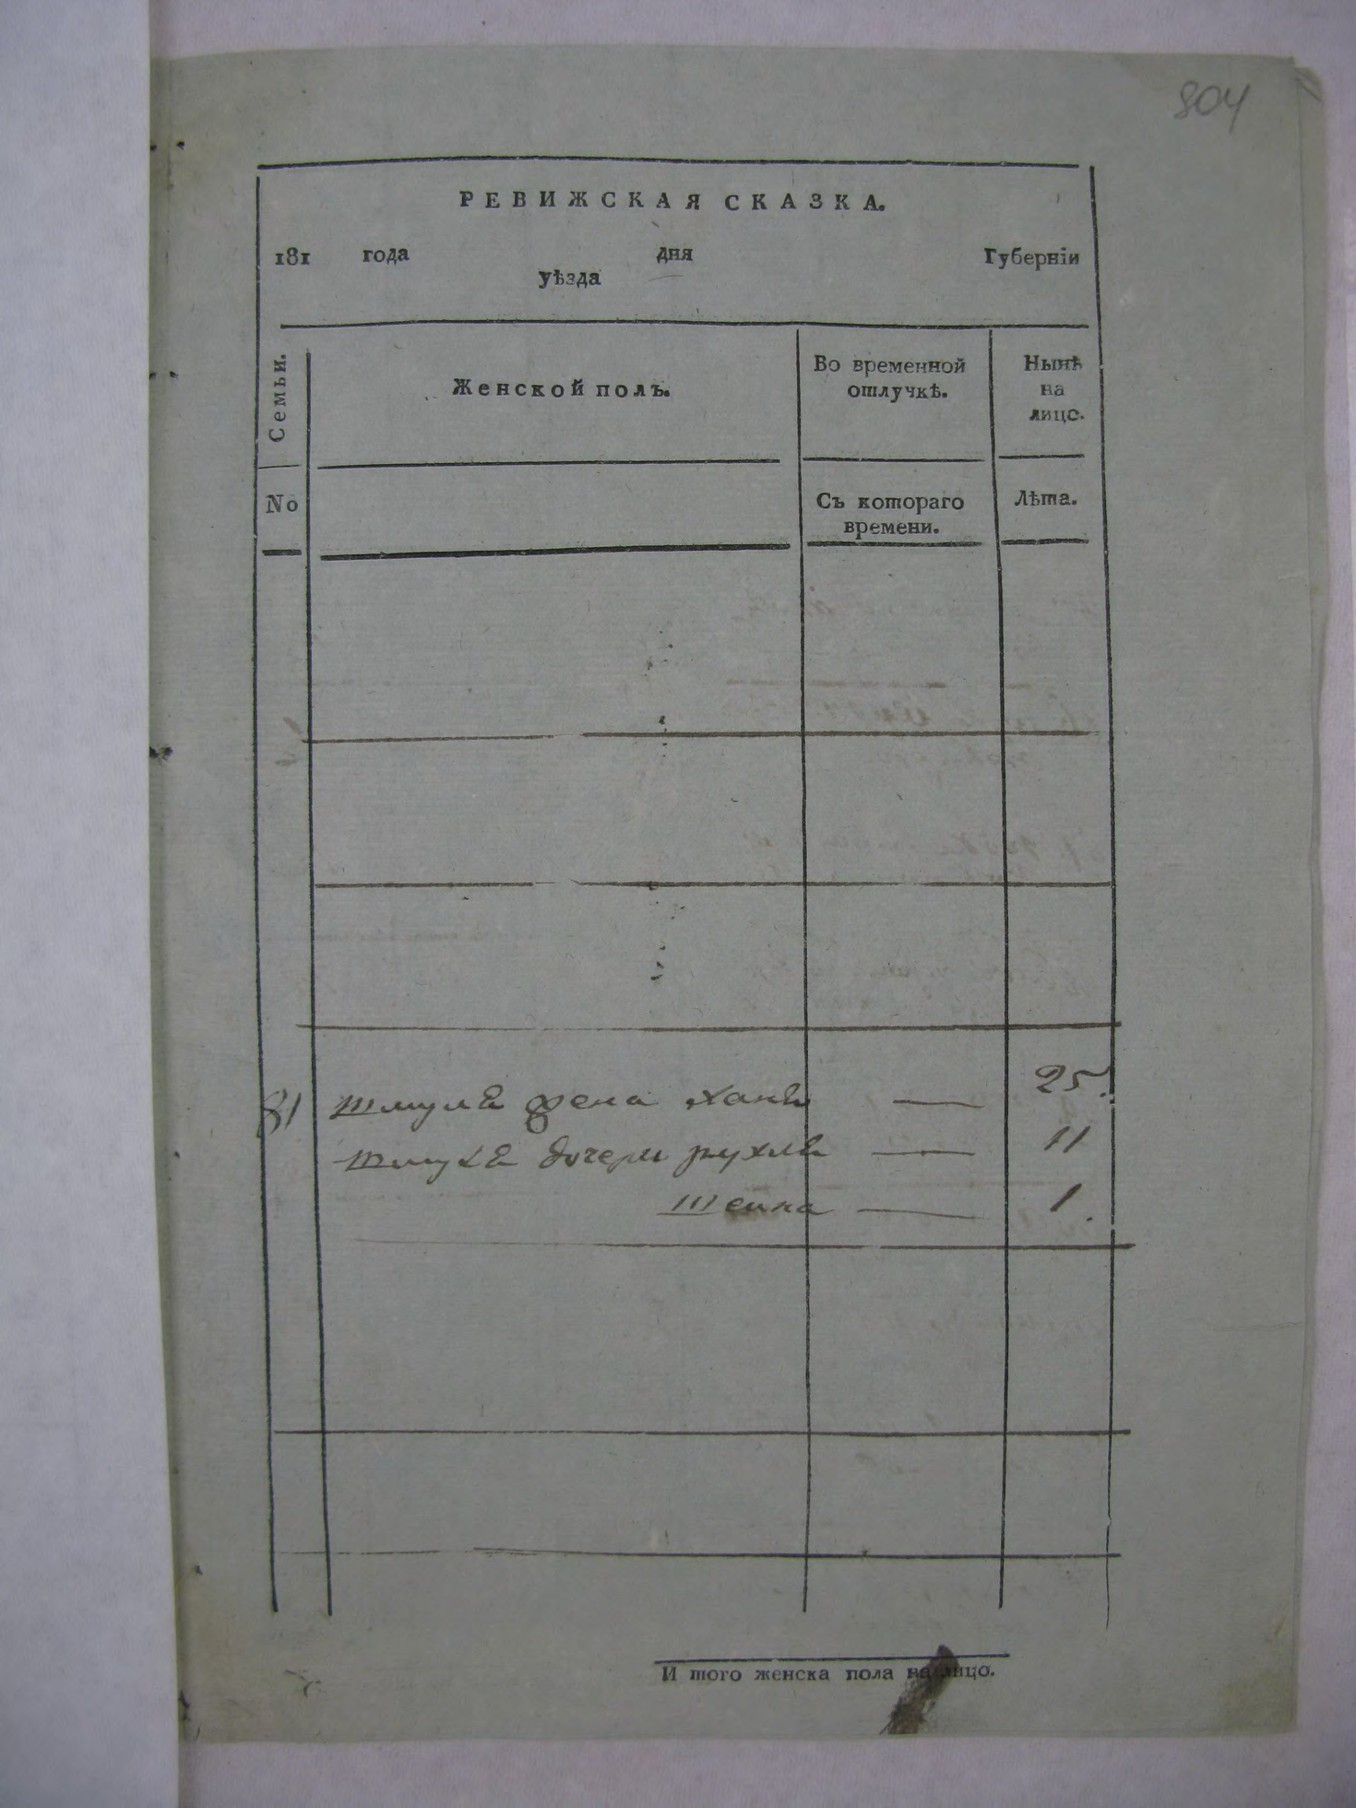 804
РЕВИЖСКАЯ СКАЗКА.
181 года дня Губерніи
уѣзда
Семьи.
Женской полъ.
Во временной отлучкѣ.
Нынѣ на лицо.
No
Съ котораго времени.
Лѣта.
81 Шмулѣ жена Ханѣ — 25.
дочери рухлѣ — 11
Шеина — 1.
И того женска пола на лицо.